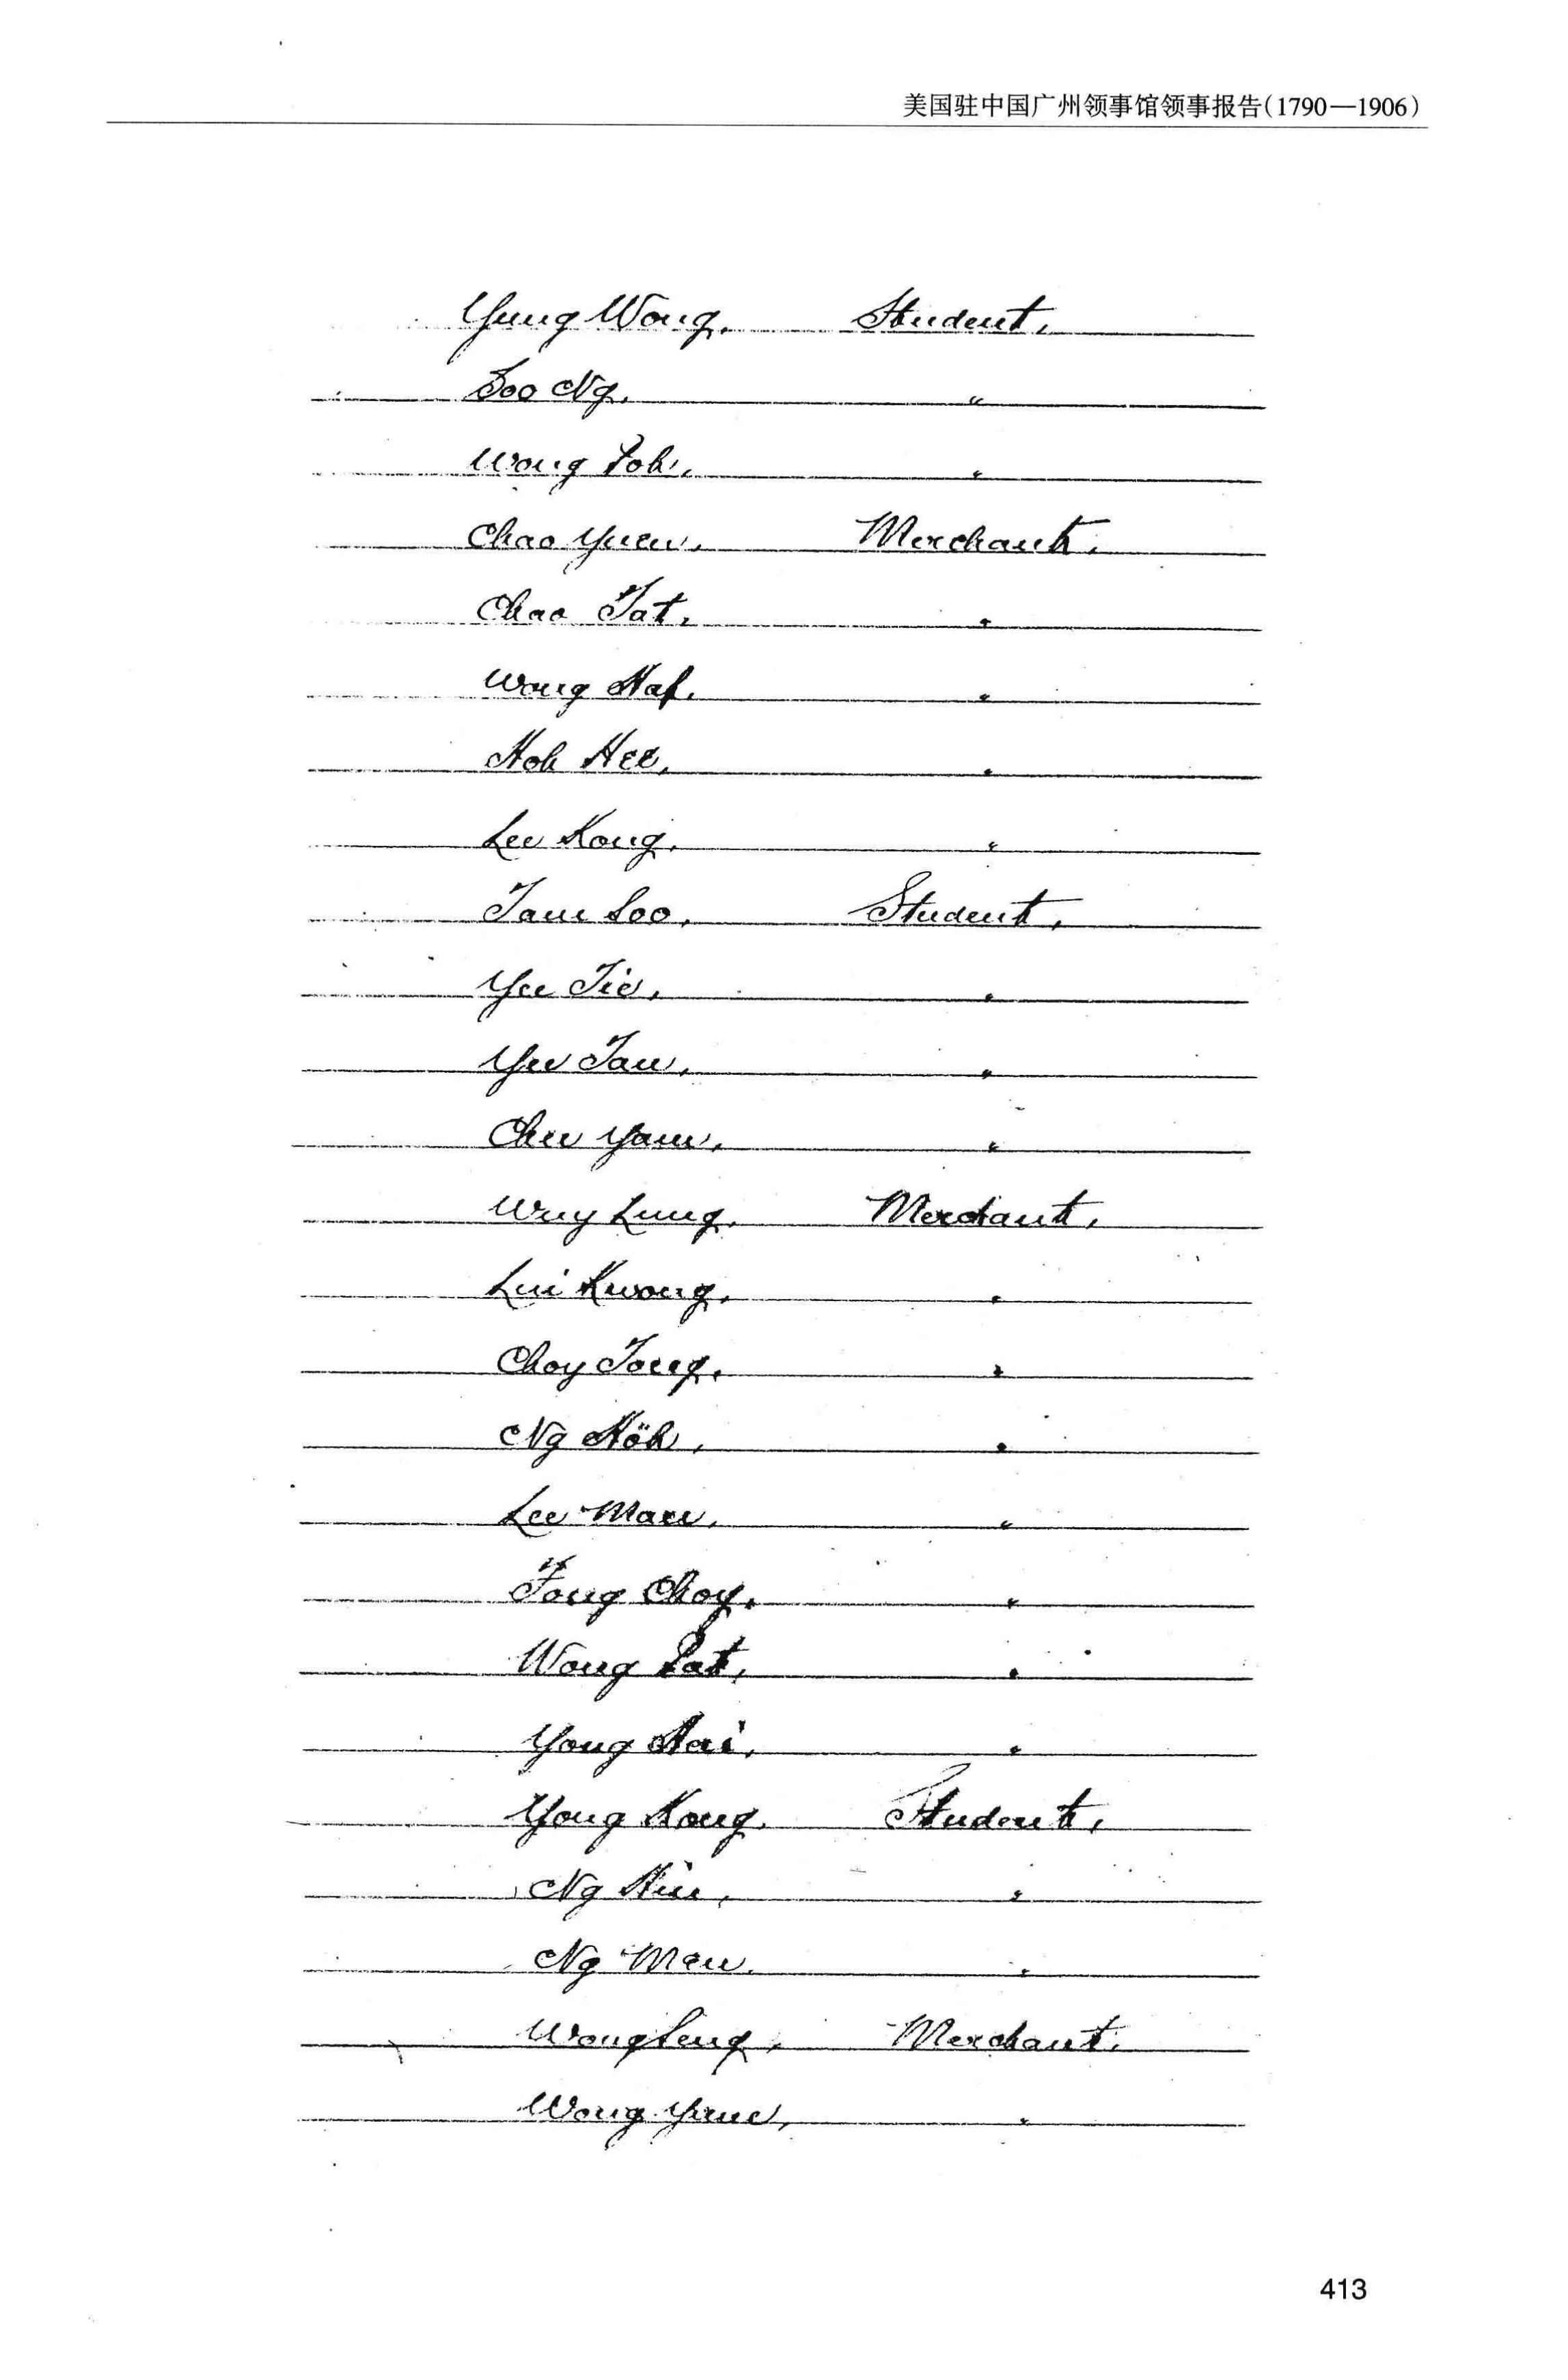 美国驻中国广州领事馆领事报告(1790—1906)
Yung Wong. Student,
Soo Ng. "
Wong Poh, "
Chao Yuen. Merchant.
Chao Tat, "
Wong Hap. "
Hoh Hee, "
Lee Kong. "
Tam Soo, Student,
Yee Tie, "
Yee Tan, "
Chew Yam, "
Wuy Lung. Merchant,
Lui Kwong. "
Choy Tong. "
Ng Höh, "
Lee Man, "
Fong Choy. "
Wong Pat, "
Yong Hai, "
Yong Kong. Student,
Ng Hin, "
Ng Men. "
Wong Seng, Merchant.
Wong Yune, "
413